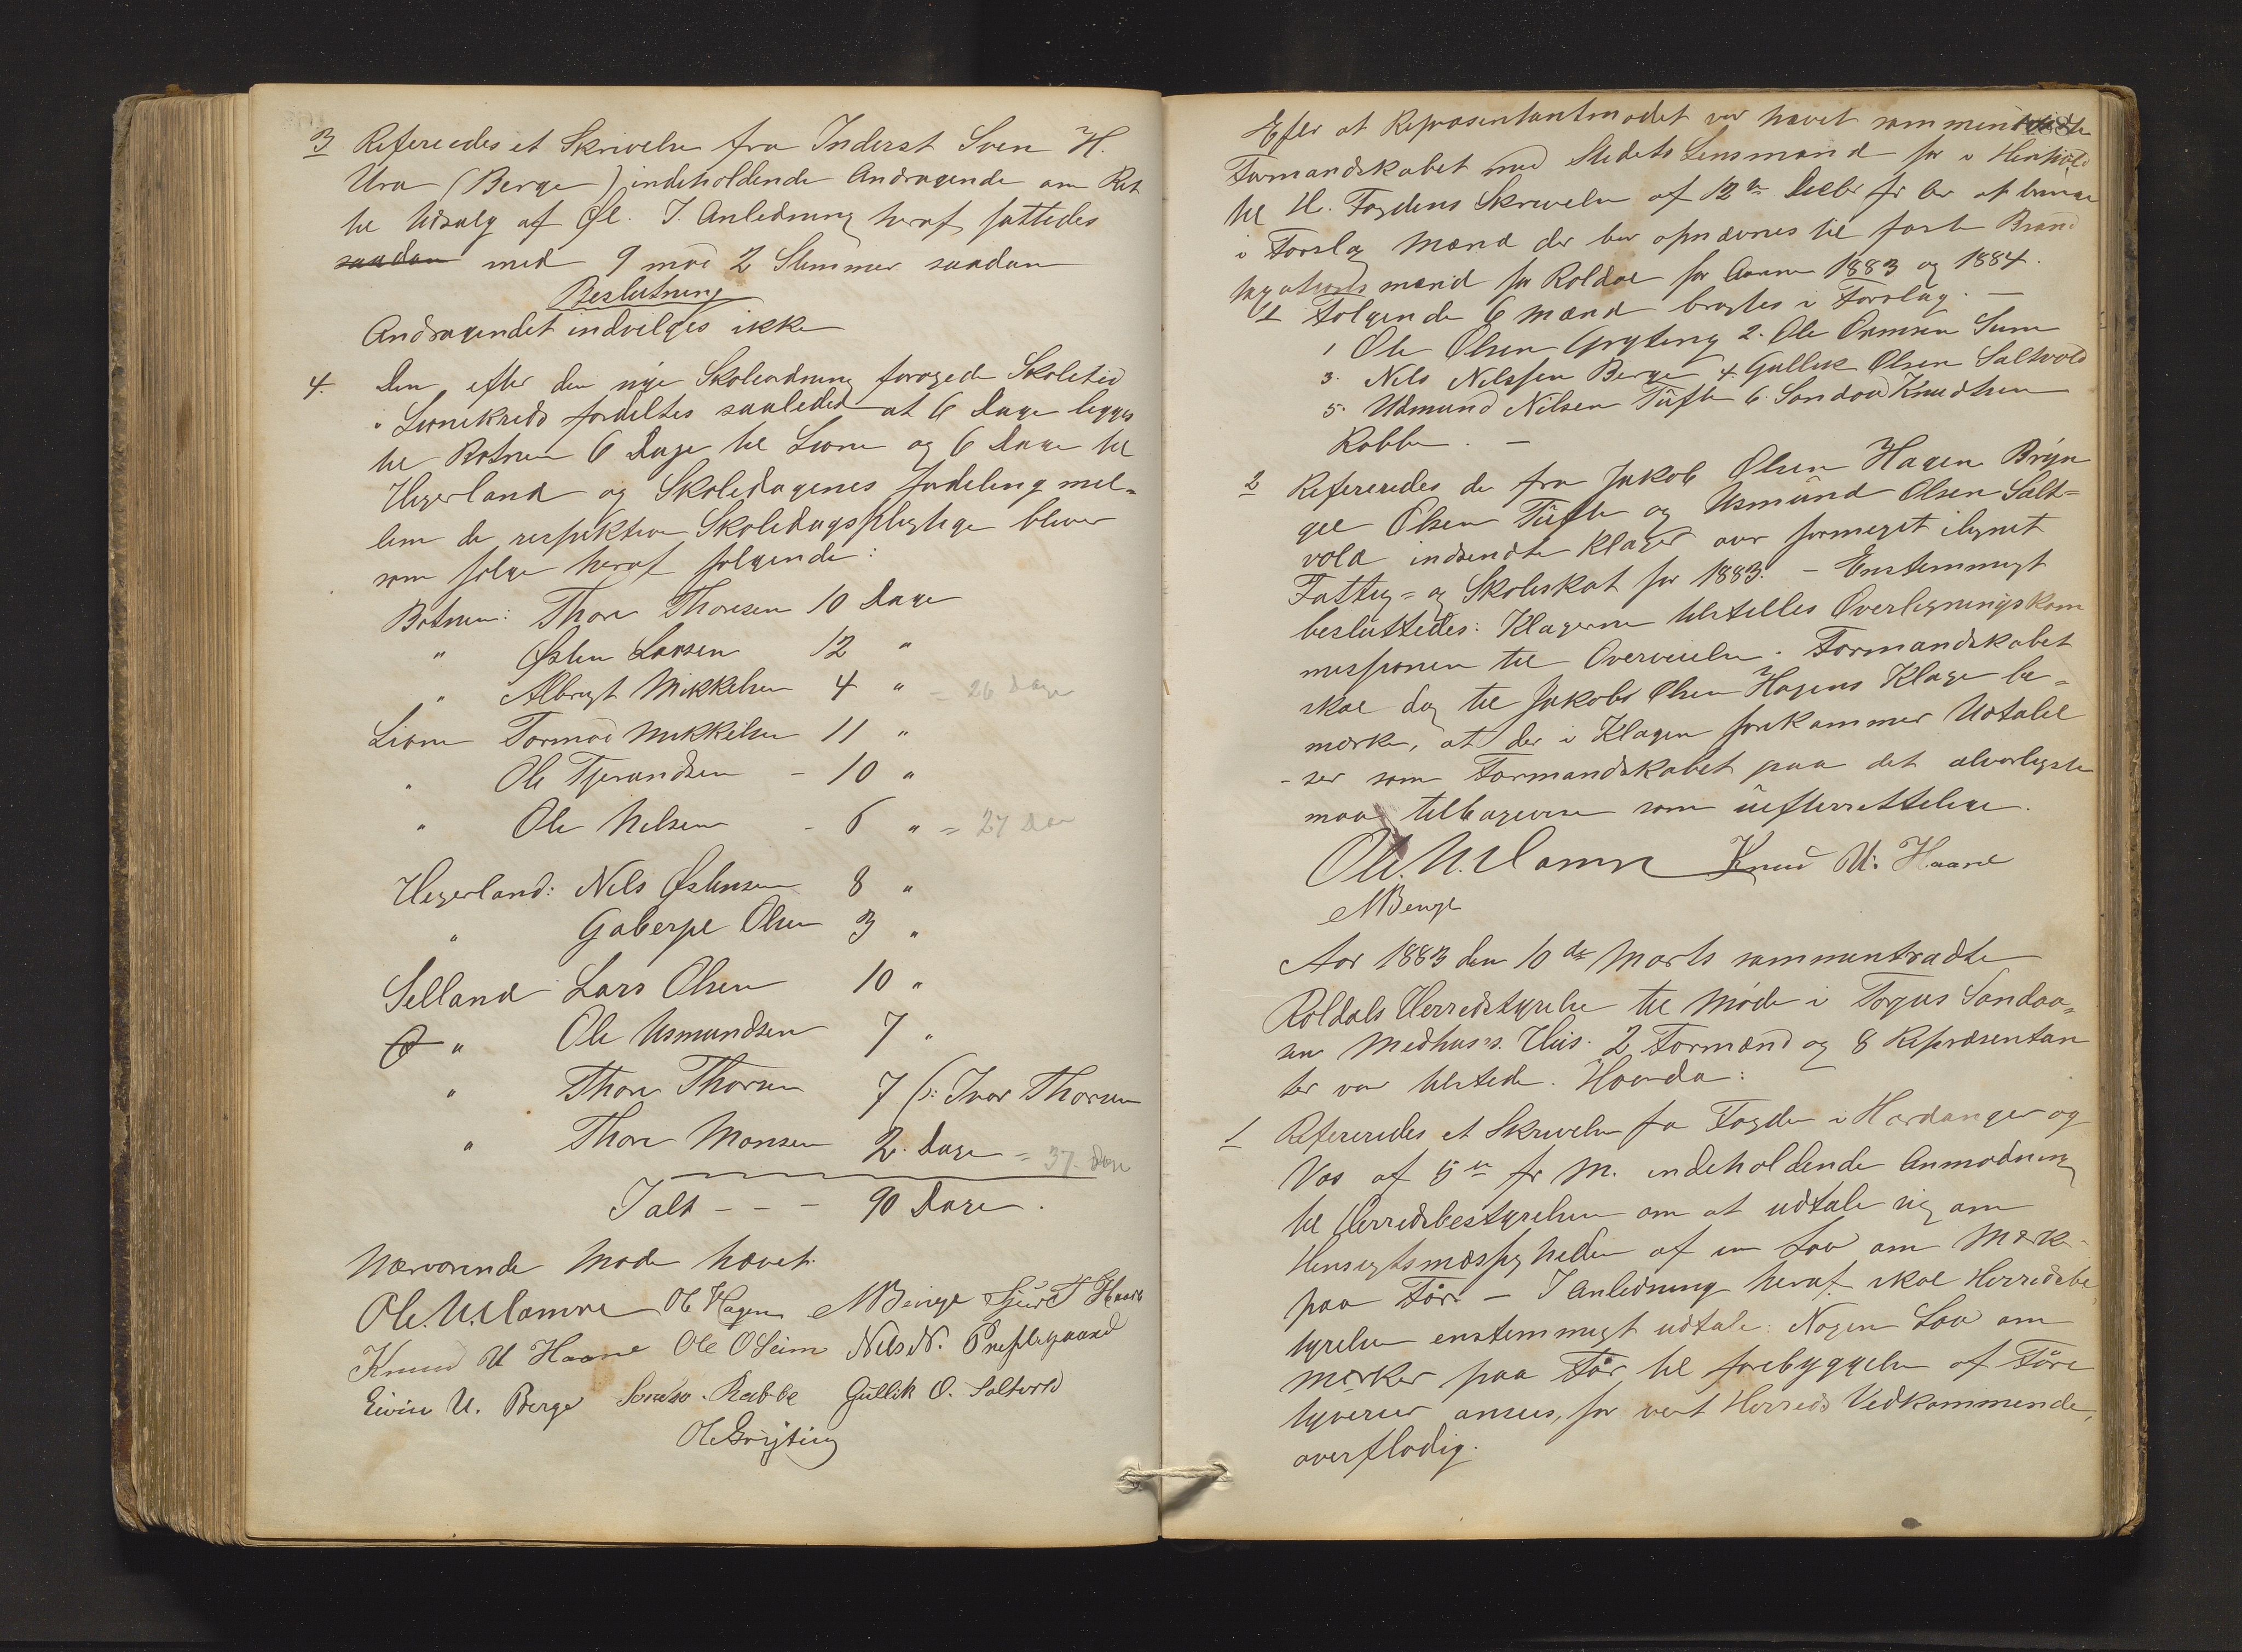 3 Refereredes et Skrivelse fra Inderst Sven H.
Ura (Berge) indeholdende Andragende om Ret
til Udsalg af Øl. I Anledning heraf fattedes
saadan med 9 mod 2 Stemmer saadan
Beslutning
Andragendet indvilges ikke
4. Den efter den nye Skoleordning forøgede Skoletid
i Lionekreds fordeltes saaledes at 6 Dage legges
til Botnen 6 Dage til Lione og 6 Dage til
Hegerland og Skoledagenes fordeling mel-
lem de respektive Skoledagspligtige bliver
som følge heraf følgende:
Botnen: Thore Thoresen 10 Dage
" Østen Larsen 12 "
" Albregt Mikkelsen 4 " = 26 Dage
Lione Tormod Mikkelsen 11 "
" Ole Tjerandsen - 10 "
" Ole Nelsen - 6 " = 27 Dage
Hegerland: Nils Østensen 8 "
" Gaberpe Olsen 3 "
Selland Lars Olsen 10 "
O " Ole Asmundsen 7 "
" Thore Thorsen 7 (: Ivar Thorsen
" Thore Monsen 2. Dage = 37. Dage
Ialt - - - 90 Dage.
Nærværende Møde hævet.
Ole. U. Hamre Ole Hagen NBerge Sjur T Haare
Knud U Haare Ole O Seim Nels N. Prestegaard
Eivin U. Berge Sondov Rabbe Gullik O. Saltvold
Ole Gryting
Efter at Repræsentantmødet var hævet sammentraadte
Formandskabet med Stedets Lensmand for i Henhold
til H. Fogdens Skrivelse af 12te Decbr f. A. at bringe
i Forslag Mænd der bør opnævnes til faste Brand
taxationsmænd for Roldal for Aarene 1883 og 1884.
1 Følgende 6 Mænd bragtes i Forslag. —
1 Ole Olsen Gryting 2. Ole Ormsen Seim
3. Nels Nelssen Berge 4. Gullik Olsen Saltvold
5. Asmund Nilsen Tufte 6. Sondov Knudtsen
Rabbe. —
2 Refereredes de fra Jakob Olsen Hagen Bryn
gel Olsen Tufte og Asmund Olsen Salt=
vold indsendte Klager over formeget ilignet
Fattig= og Skoleskat for 1883. — Enstemmigt
besluttedes: Klagerne tilstilles Overligningskom
missionen til Overveielse. Formandskabet
skal dog til Jakob Olsen Hagens Klage be=
mærke, at der i Klagen forekommer Udtalel
-ser som Formandskabet paa det alvorligste
maa tilbagevise som uefterrettelige.
Ole. U. Hamre Knud U. Haare
NBerge
Aar 1883 den 10de Marts sammentraadte
Roldals Herredstyrelse til Møde i Torgus Sondov=
sen Medhuss. Hus. 2 Formænd og 8 Repræsentan
ter var tilstede. Hvorda:
1 Refereredes et Skrivelse fra Fogden i Hardanger og
Vos af 5te f. M. indeholdende Anmodning
til Herredsbestyrelsen om at udtale sig om
Hensigtsmæssigheden af en Lov om Mærke
paa Får — I Anledning heraf skal Herredsbe
tyrelsen enstemmigt udtale: Nogen Lov om
mærker paa Får til forebyggelse af Fåre
tyverier ansees, for vort Herreds Vedkommende,
overflødig.